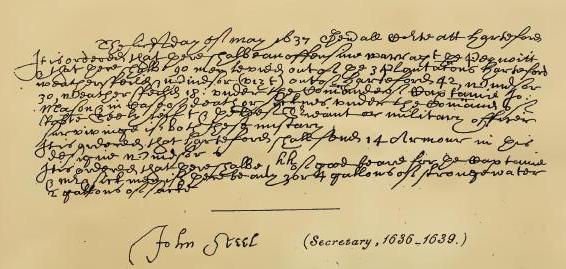 The first day of May 1637 Genall Corte att Harteford
It is ordered that there shalbe an offensiue warr agt the Pequoitt
& that there shalbe 90 men levied out of the 3 Plantations Harteford
weathersfeild & Windsor (vizt) out of Harteford 42, Windsor
30, Weathersfeild 18: under the Comande of Captaine Jo:
Mason & in Case of death or sicknes under the Comand of
Robte Seely Leift & the eldest srieant or military officer
survivinge if both these miscary
It is ordered that Harteford shall send 14 Armour in this
designe Windsor 6
It is ordered that there shalbe hhd of good beare for the Captaine
& mr & sick men if there be only 3 or 4 gallons of strong water
2 gallons of sacke
John Steel (Secretary, 1636-1639.)